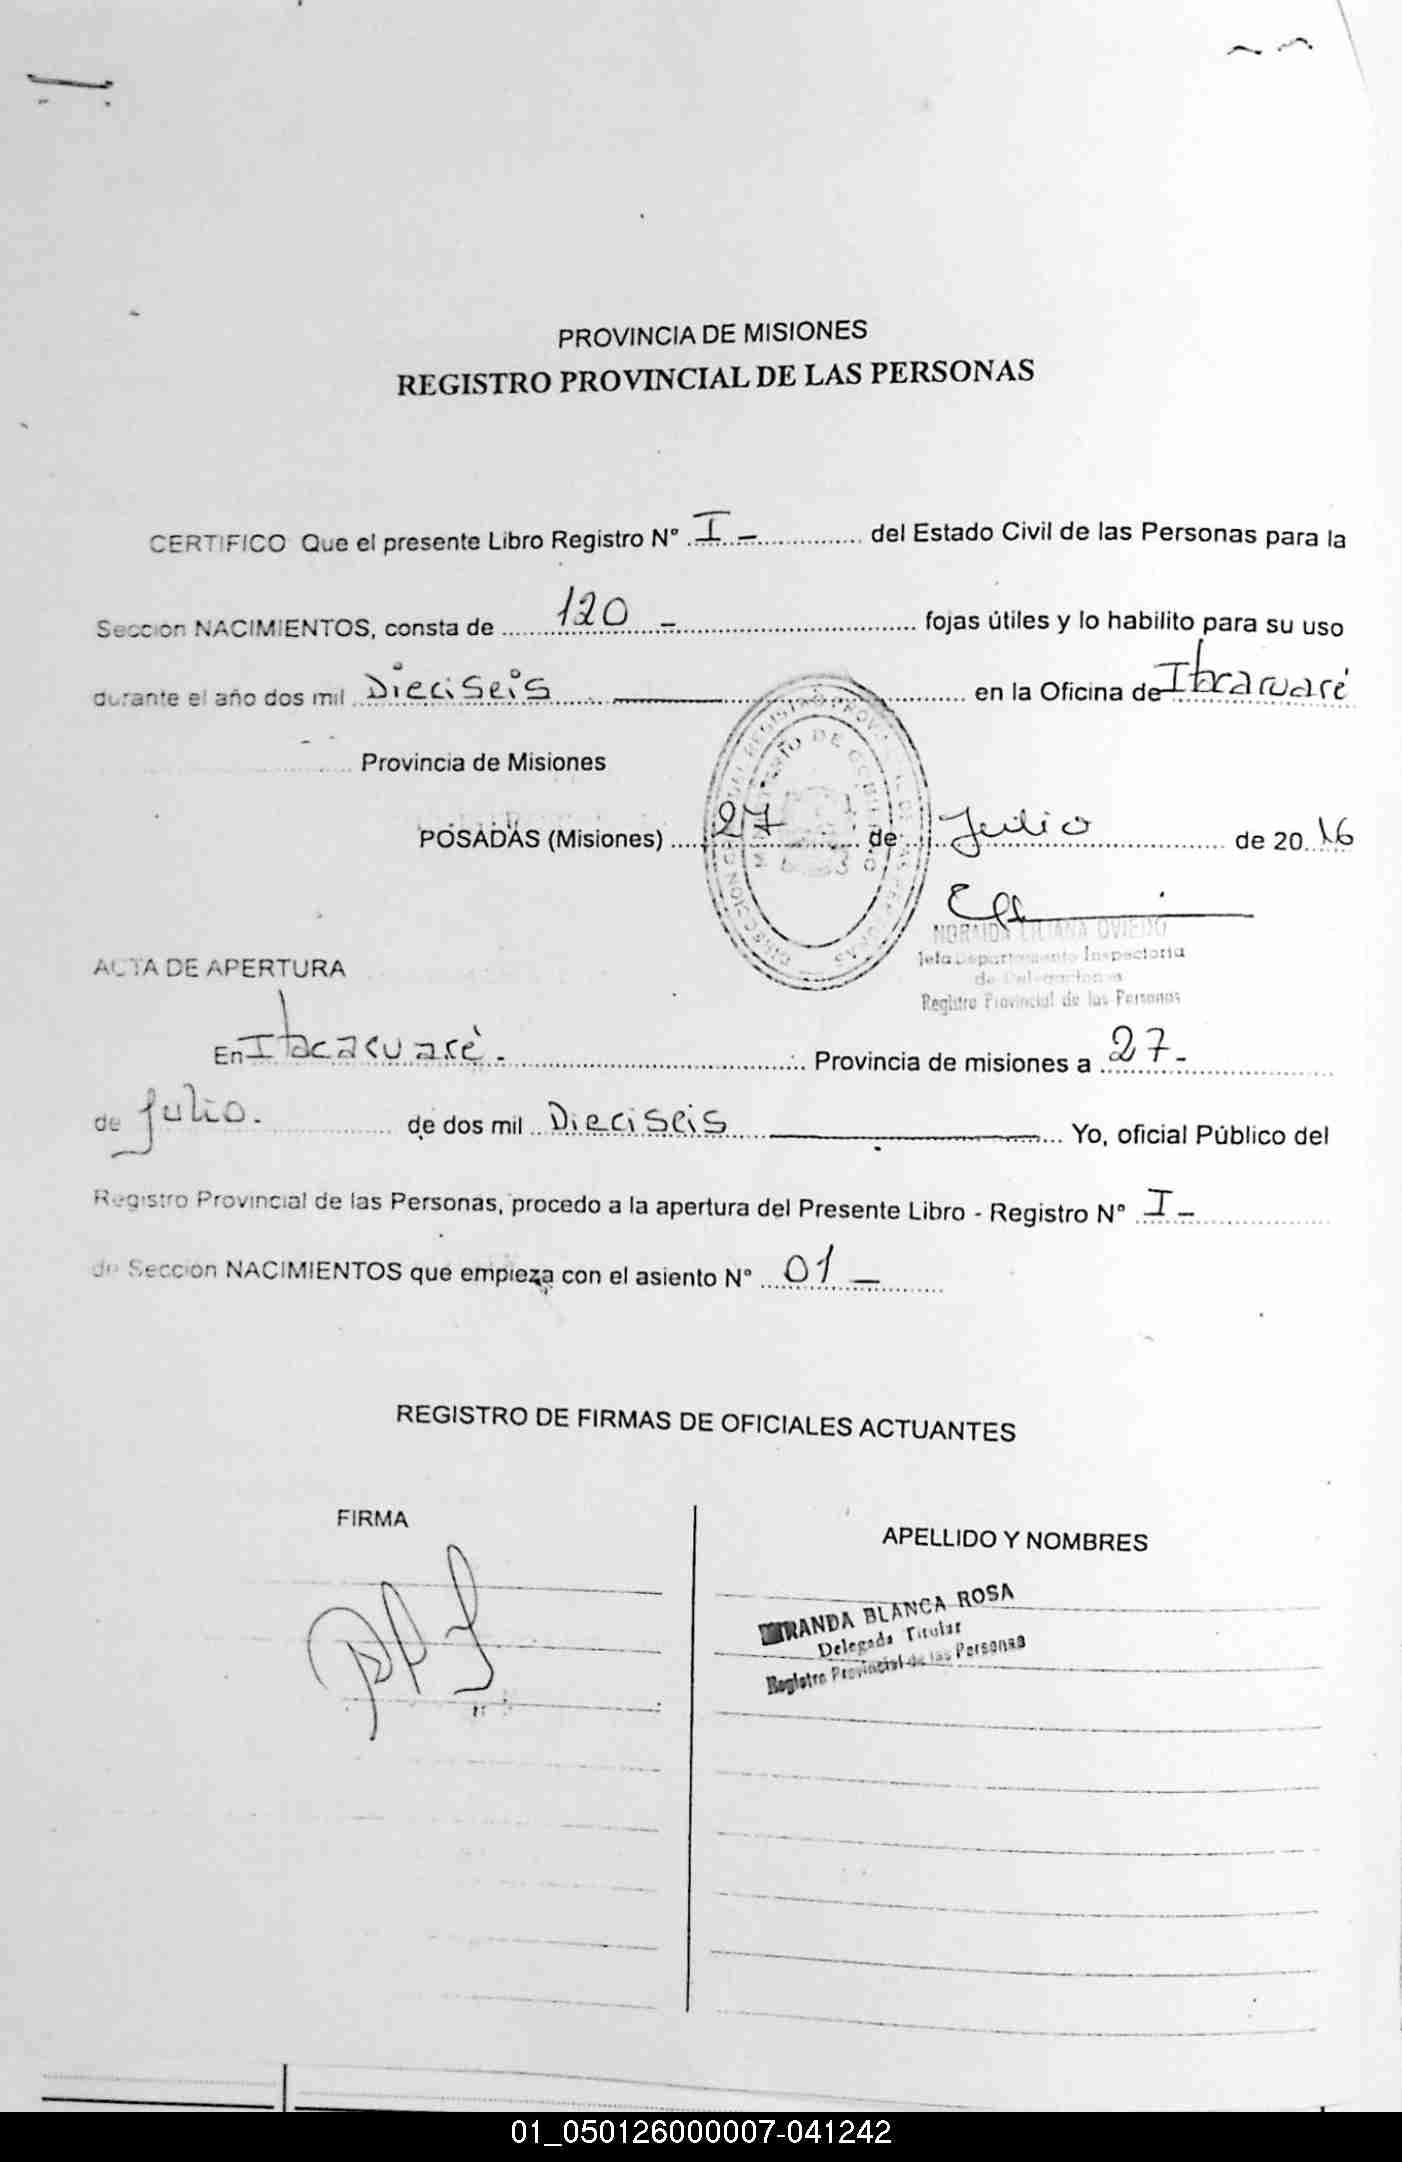 PROVINCIA DE MISIONES
REGISTRO PROVINCIAL DE LAS PERSONAS
CERTIFICO Que el presente Libro Registro N° I - del Estado Civil de las Personas para la
Sección NACIMIENTOS, consta de 120 - fojas útiles y lo habilito para su uso
durante el año dos mil Dieciseis en la Oficina de Itacaruaré
Provincia de Misiones
POSADAS (Misiones) 27 de Julio de 20 16
NORAIDA LILIANA OVIEDO
Jefa Departamento Inspectoria
de Delegaciones
Registro Provincial de las Personas
ACTA DE APERTURA
En Itacaruaré. Provincia de misiones a 27 -
de Julio. de dos mil Dieciseis Yo, oficial Público del
Registro Provincial de las Personas, procedo a la apertura del Presente Libro - Registro N° I -
de Sección NACIMIENTOS que empieza con el asiento N° 01 —
REGISTRO DE FIRMAS DE OFICIALES ACTUANTES
FIRMA
APELLIDO Y NOMBRES
BLANCA ROSA
Delegada Titular
Registro Provincial de las Personas
01_050126000007-041242